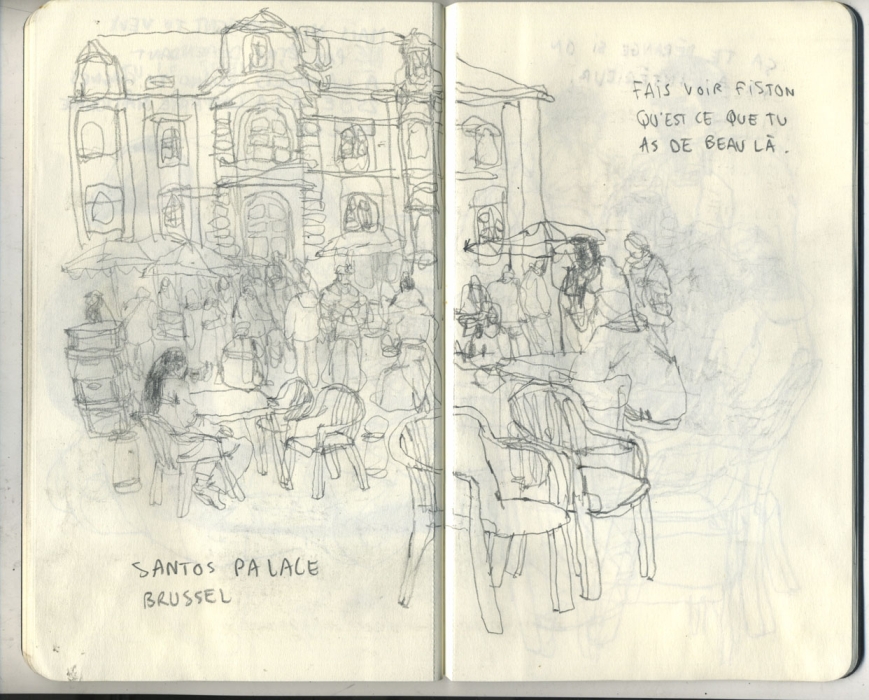 SANTOS PALACE
BRUSSEL
FAIS VOIR FISTON
QU'EST CE QUE TU
AS DE BEAU LÀ.